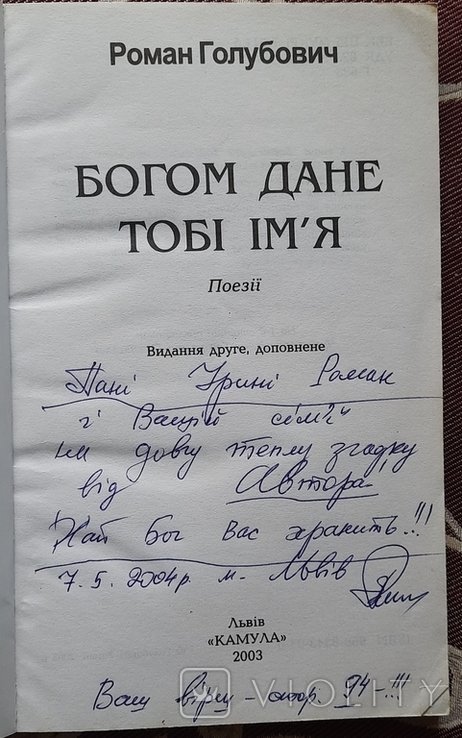 Роман Голубович
БОГОМ ДАНЕ
ТОБІ ІМ'Я
Поезії
Видання друге, доповнене
Пані Ірині Роман
і Вашій сім'ї
на довгу теплу згадку
від Автора
Хай Бог Вас хранить!!!
7.5.2004р м. Львів
Львів
«КАМУЛА»
2003
Ваш вірш – стор. 94 –!!!
VIOLITY